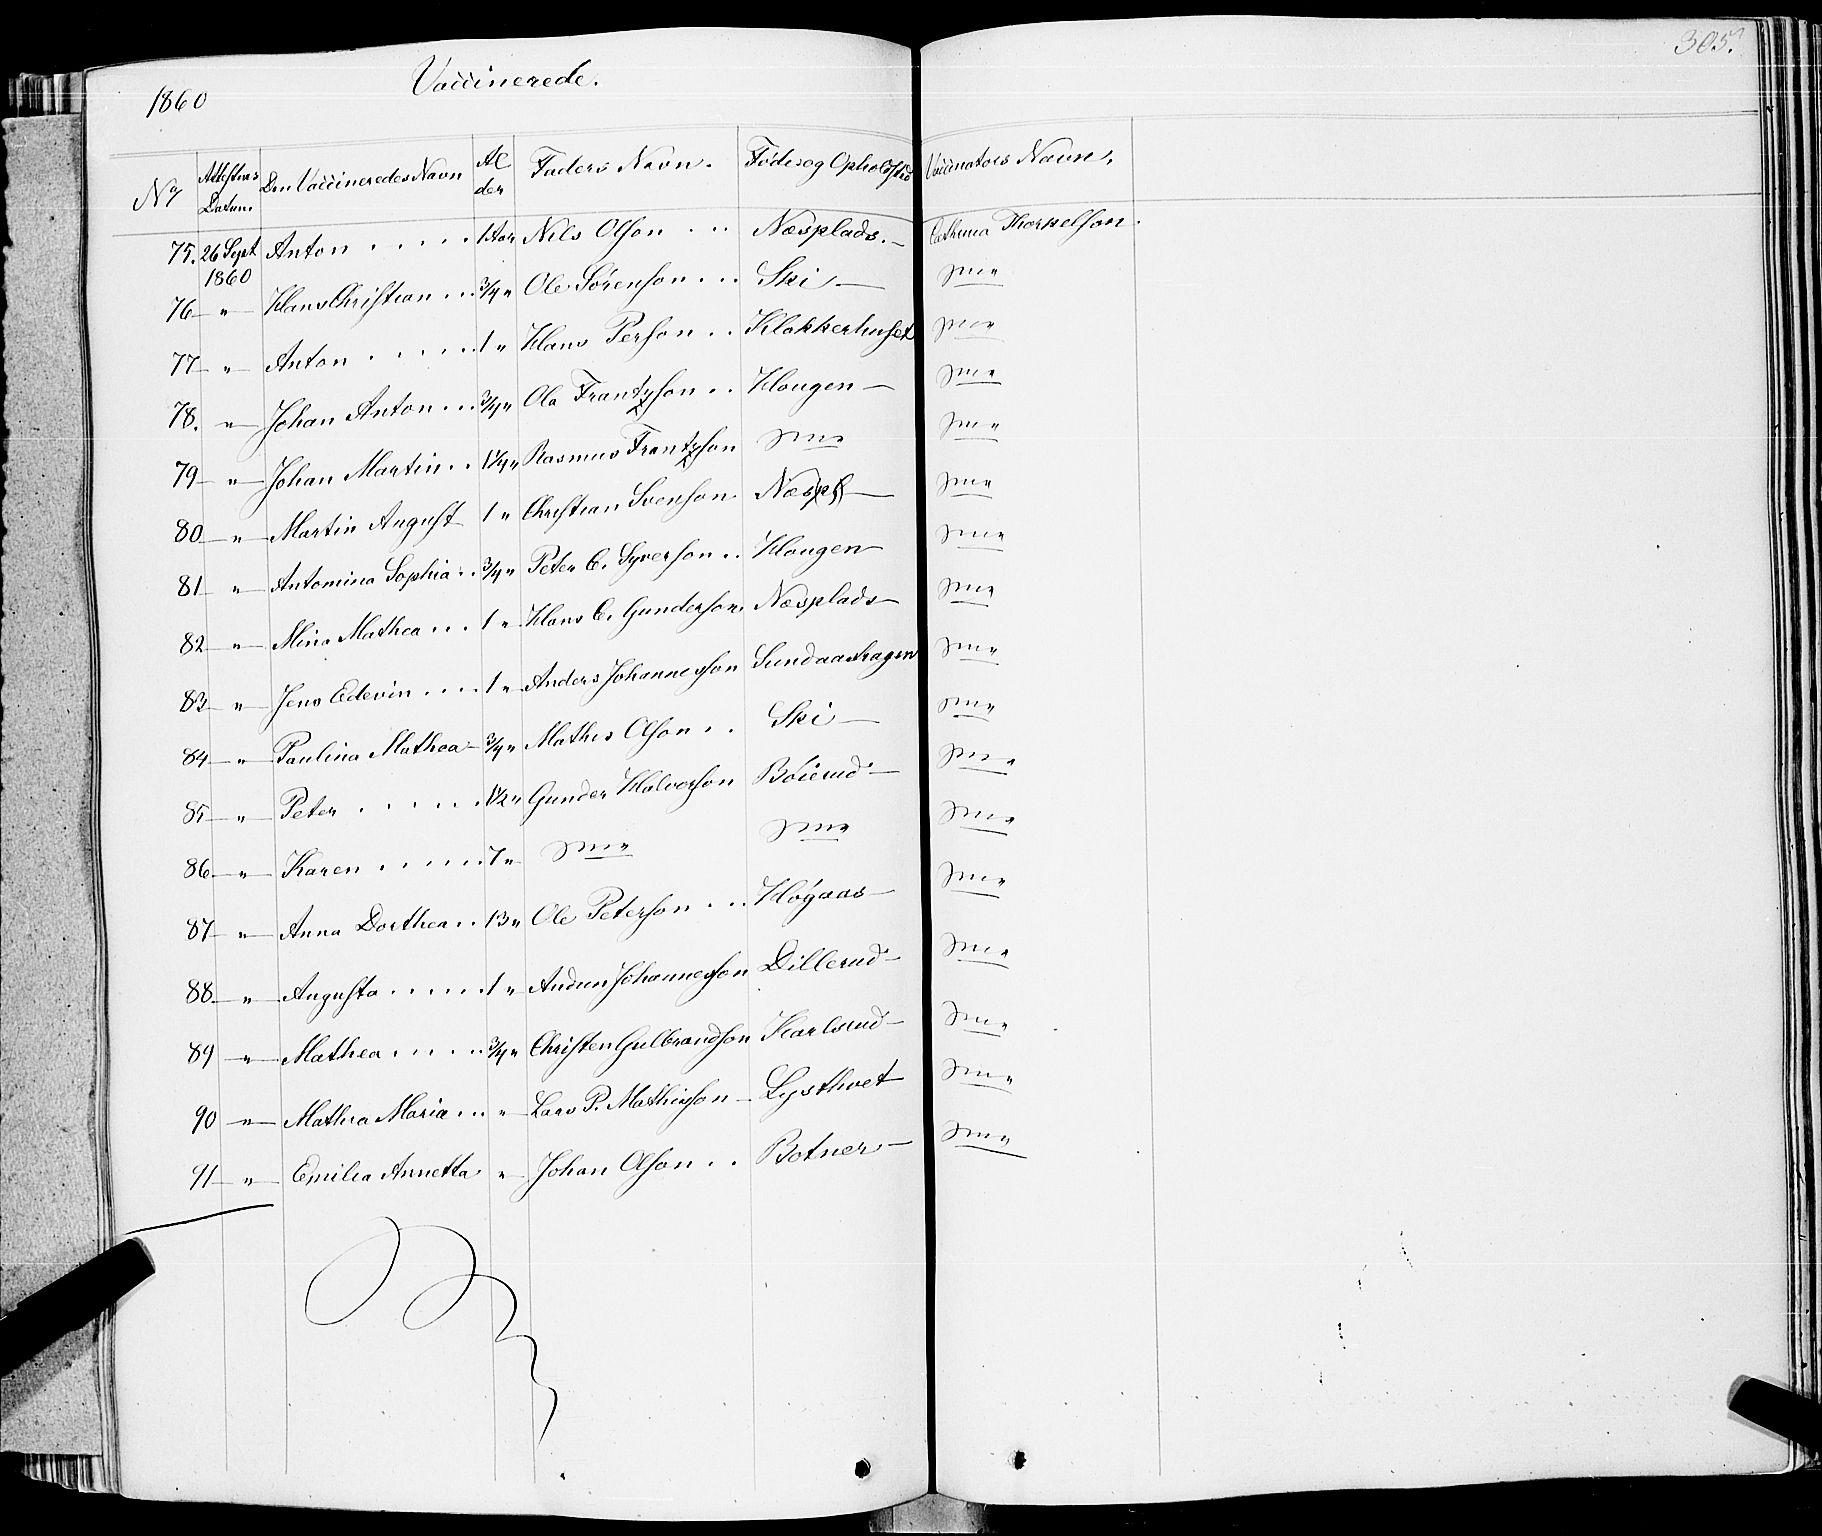 305.
1860 Vaccinerede.
No Attestens Datum. Den Vaccineredes Navn Alder Faders Navn. Føde og Opholdsted Vaccinators Navn.
75. 26 Sept 1860 Anton . . . . . 1 Aar Nils Olson . . . Næsplads. — Cathrina Thorkelson.
76 — " — Hans Christian . . . 3/4 " Ole Sørenson . . . Ski —
77 — " — Anton . . . . . . 1 " Hans Person . . Klokkerhuset
78. — " — Johan Anton . . . 3/4 " Ole Frantzson . . Hougen —
79 — " — Johan Martin . . 1 1/4 " Rasmus Frantzson
80 — " — Martin August 1 " Christian Svenson Næspl —
81 — " — Antomina Sophia . . 3/4 " Peter C. Syverson . . Hougen —
82 — " — Mina Mathea . . . 1 " Hans C. Gunderson. Næsplads —
83 — " — Jens Edevin . . . . 1 " Anders Johannesson Sundaashagen
84 — " — Paulina Mathea — 3/4 " Mathis Olson . . Ski —
85 — " — Peter . . . . . . 1 1/2 " Gunder Halverson Bøierud —
86 — " — Karen . . . . . . 7 "
87 — " — Anna Dorthea . . 13 " Ole Peterson . . . Høgaas —
88 — " — Augusta . . . . . 1 " Audun Johannesson Dillerud —
89 — " — Mathea . . . . . 3/4 " Christen Gulbrandson Karlsrud —
90 — " — Mathea Maria . . . " — Lars P. Mathisson — Lysthvet
91 — " — Emilia Annetta " — Johan Olson . . Botner —